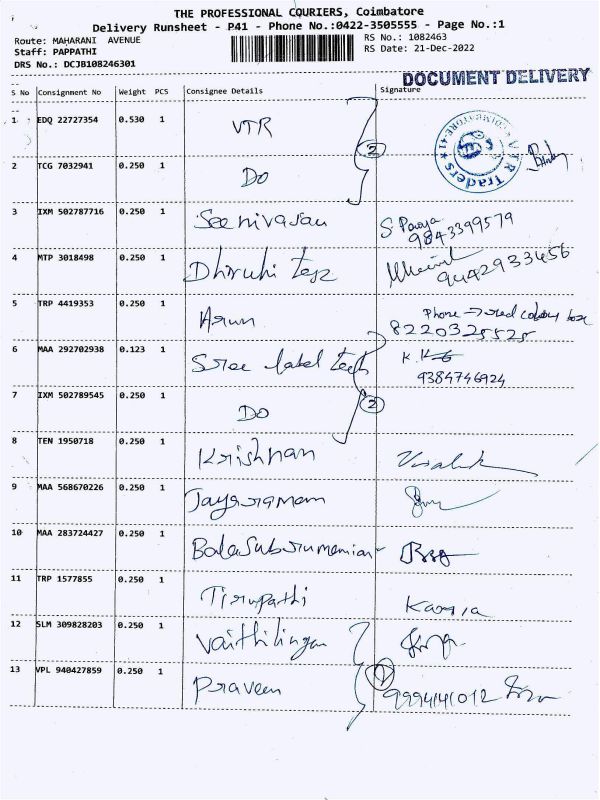 THE PROFESSIONAL COURIERS, Coimbatore
Delivery Runsheet - P41 - Phone No.:0422-3505555 - Page No.:1
Route: MAHARANI AVENUE
RS No.: 1082463
Staff: PAPPATHI
RS Date: 21-Dec-2022
DRS No.: DCJB108246301
DOCUMENT DELIVERY
S No Consignment No Weight PCS Consignee Details Signature
1 EDQ 22727354 0.530 1 VTR
COIMBATORE-41 ★ VTR Traders
2
2 TCG 7032941 0.250 1 Do
3 IXM 502787716 0.250 1 Seenivasan S
9843399579
4 MTP 3018498 0.250 1 Dhruhi Tex
9442933456
5 TRP 4419353 0.250 1 Arun Phone → red colour box
8220325525
6 MAA 292702938 0.123 1 Sree label tech K.
9384746924
7 IXM 502789545 0.250 1 Do 2
8 TEN 1950718 0.250 1 Krishnan
9 MAA 568670226 0.250 1 Jayaramam
10 MAA 283724427 0.250 1 Balasubrumemian
11 TRP 1577855 0.250 1 Tirupathi
12 SLM 309828203 0.250 1 Vaithilingam
13 VPL 940427859 0.250 1 Praveen 1 9994141012